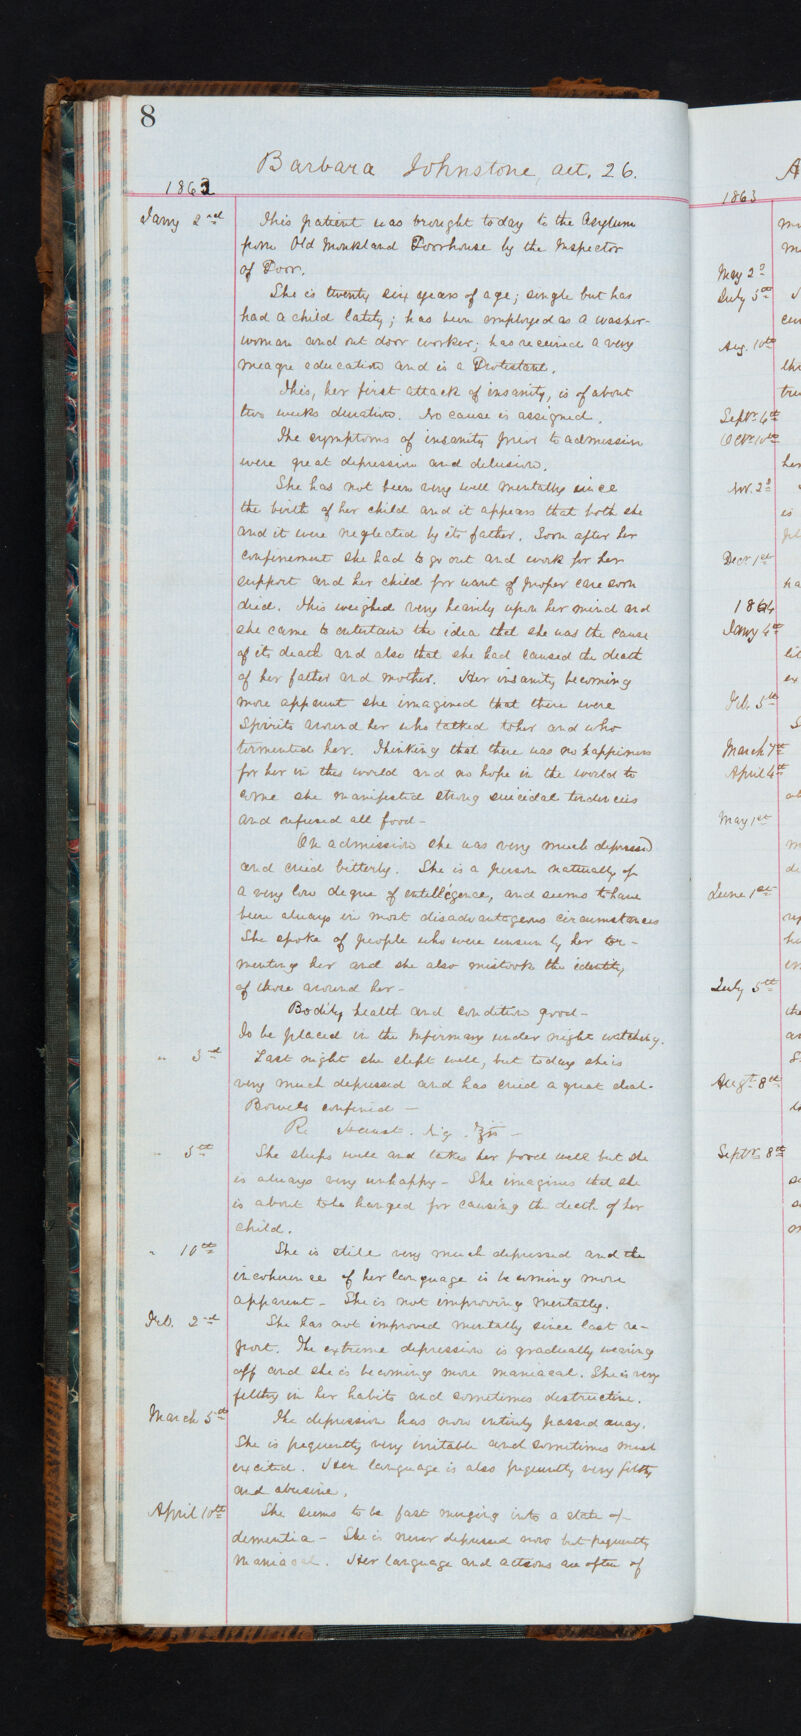 8
Barbara Johnstone, aet. 26.
1863
Jany 2nd This patient was brought today to the Asylum
from Old Monkland Poorhouse by the Inspector
of Poor.
She is twenty six years of age; single but has
had a child lately; has been employed as a washer-
woman and out door worker; has received a very
meagre education and is a Protestant.
This, her first attack of insanity, is of about
two weeks duration. No cause is assigned.
The symptoms of insanity prior to admission
were great depression and delusion.
She has not been very well mentally since
the birth of her child and it appears that both she
and it were neglected by its father. Soon after her
confinement she had to go out and work for her
support and her child for want of proper care soon
died. This weighed very heavily upon her mind and
she came to entertain the idea that she was the cause
of its death and also that she had caused the death
of her father and mother. Her insanity becoming
more apparent she imagined that there were
Spirits around her who talked to her and who
tormented her. Thinking that there was no happiness
for her in this world and no hope in the world to
come she manifested strong suicidal tendencies
and refused all food -
On admission she was very much depressed
and cried bitterly. She is a person naturally of
a very low degree of intelligence, and seems to have
been always in most disadvantageous circumstances
She spoke of people who were unseen by her tor-
menting her and she also mistook the identity
of those around her -
Bodily health and condition good -
To be placed in the Infirmary under night watching.
" 3rd Last night she slept well, but today she is
very much depressed and has cried a great deal.
Bowels confined -
" 5th She sleeps well and takes her food well but she
is always very unhappy - She imagines that she
is about to be hanged for causing the death of her
child.
" 10th She is still very much depressed and the
incoherence of her language is becoming more
apparent - She is not improving mentally.
Feb. 2nd She has not improved mentally since last re-
port. The extreme depression is gradually wearing
off and she is becoming more maniacal. She is very
filthy in her habits and sometimes destructive.
March 5th The depression has now entirely passed away.
She is frequently very irritable and sometimes much
excited. Her language is also frequently very filthy
and abusive.
April 10th She seems to be fast merging into a state of
dementia - She is never depressed now but frequently
maniacal. Her language and actions are often of
A
1863
May 2d
July 5th
Aug. 10th
Septr. 6th
Octr. 10th
Nov. 2d
Decr. 1st
1864
Jany 4th
Feb. 5th
March 7th
April 4th
May 1st
June 1st
July 5th
Augt. 8th
Septr. 8th